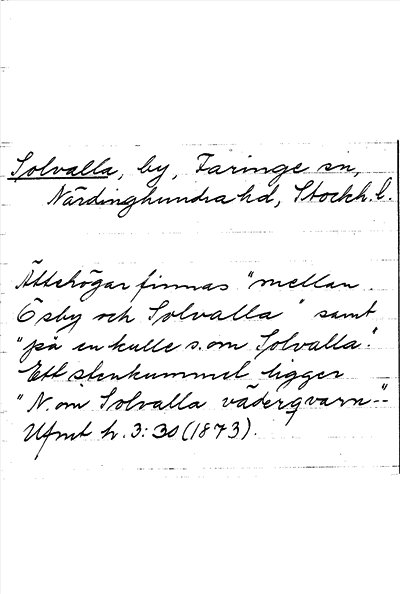 Solvalla, by, Faringe sn,
Närdinghundra hd, Stockh. l.
Ättehögar finnas "mellan
Ösby och Solvalla" samt
"på en kulle s. om Solvalla."
Ett stenkummel ligger
"N. om Solvalla väderqvarn--"
Ufmt h. 3: 30 (1873).